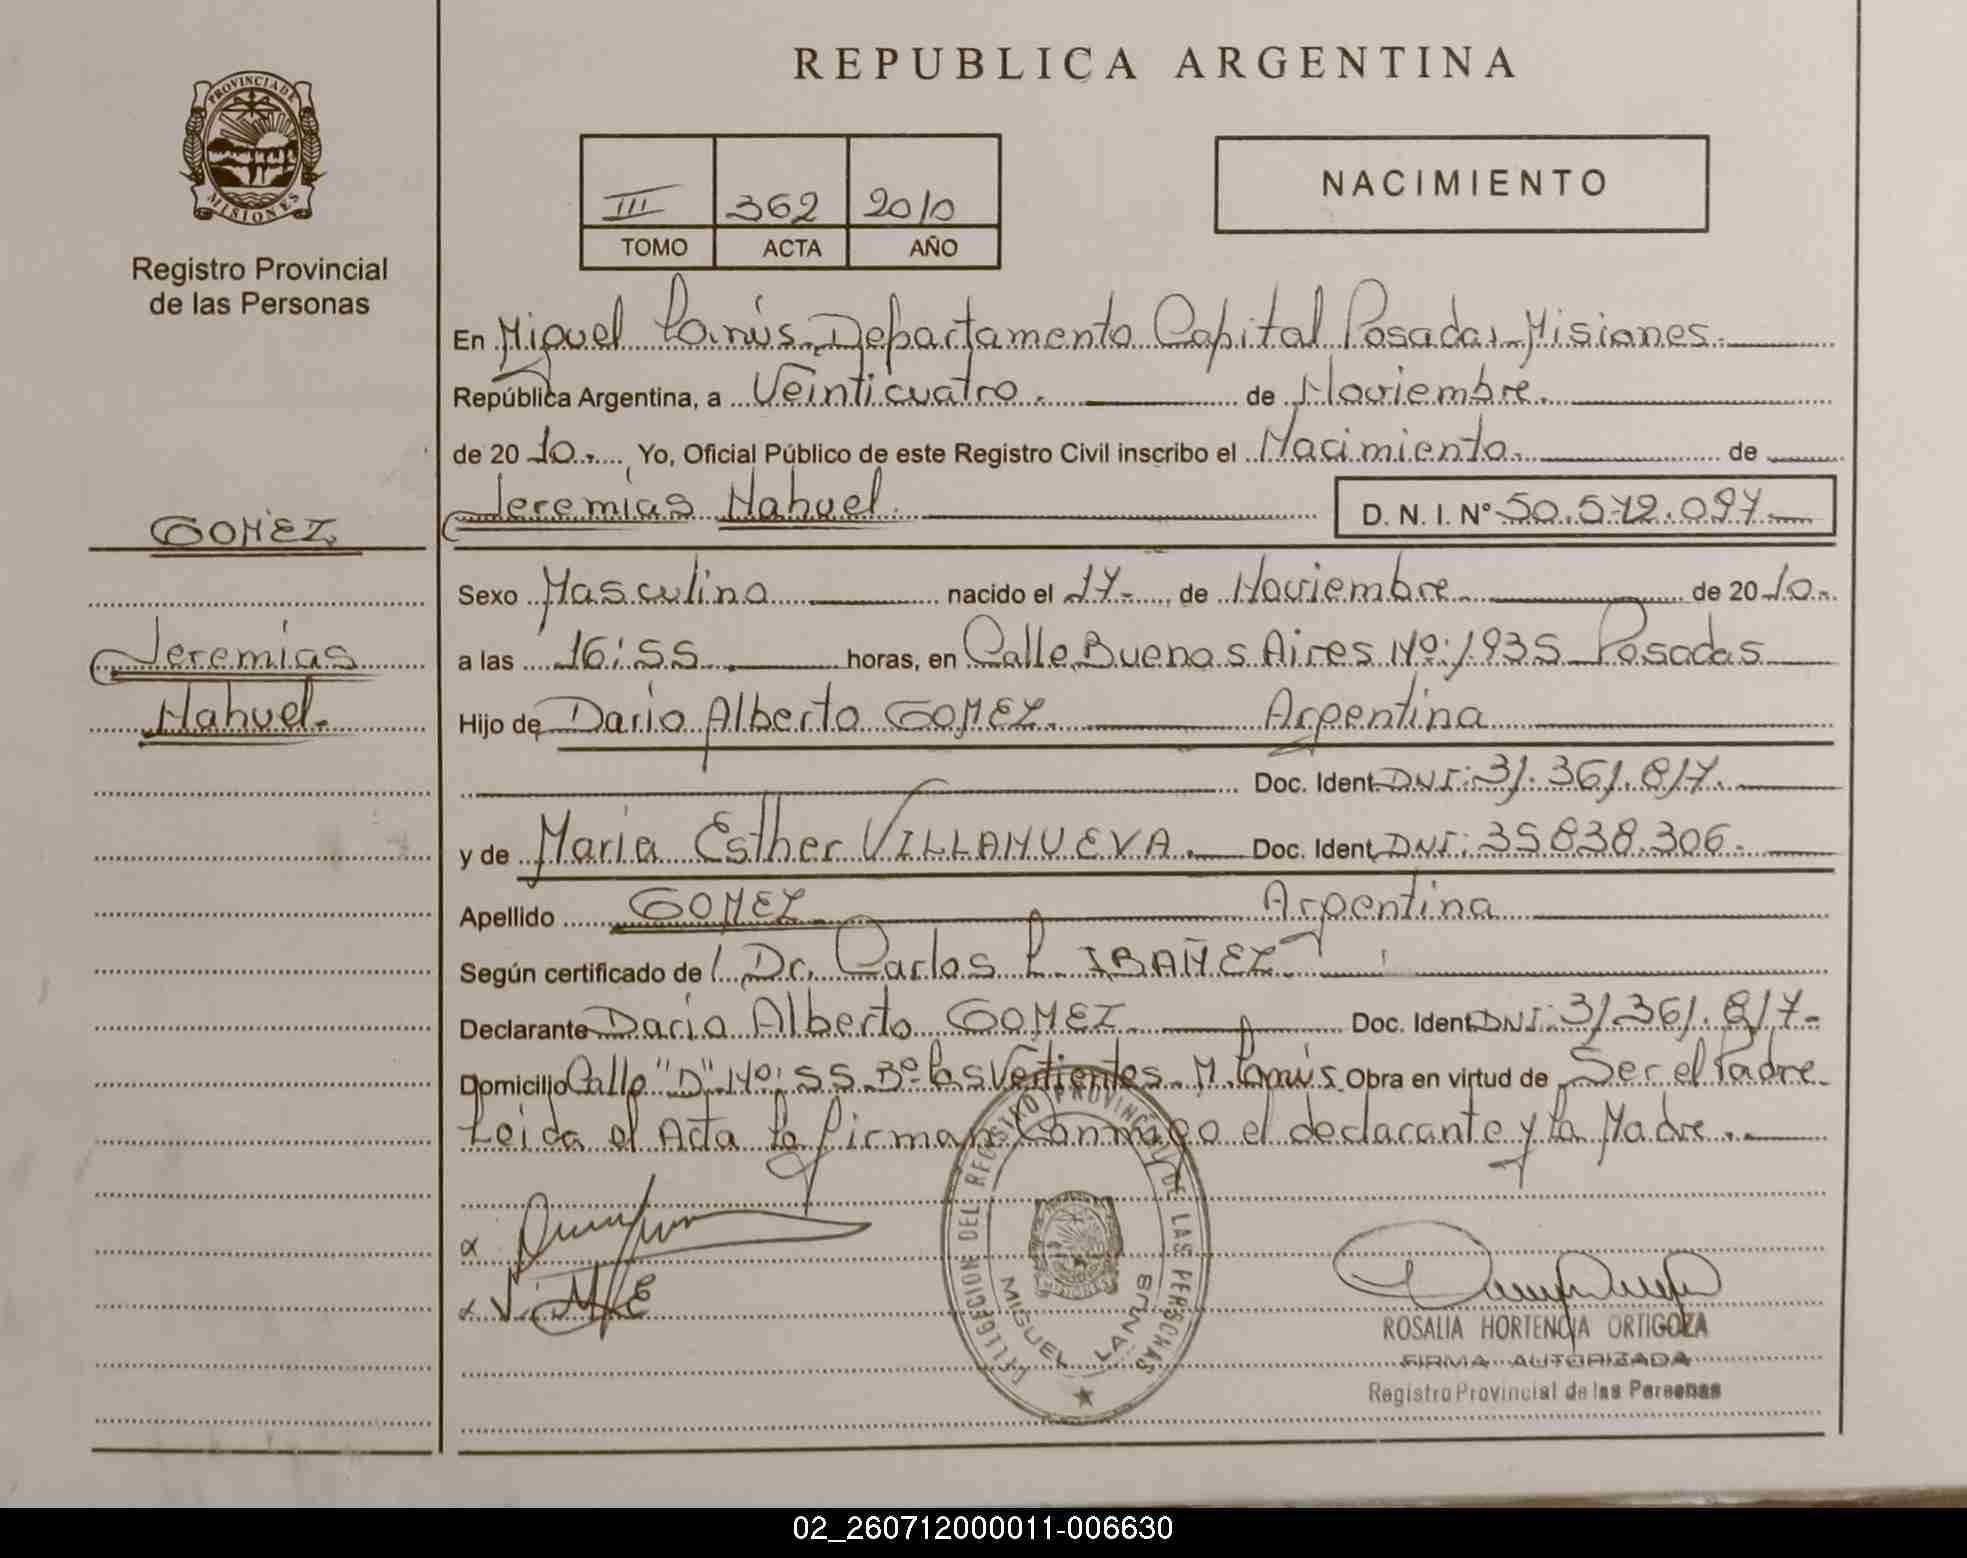 REPUBLICA ARGENTINA
PROVINCIA DE
MISIONES
Registro Provincial
de las Personas
III 362 2010
TOMO ACTA AÑO
NACIMIENTO
En Miguel Lanús Departamento Capital Posadas Misiones.
República Argentina, a Veinticuatro. de Noviembre.
de 20 10. Yo, Oficial Público de este Registro Civil inscribo el Nacimiento. de
Jeremias Nahuel. D. N. I. N° 50.572.097
GOMEZ
Jeremias
Nahuel.
Sexo Masculino nacido el 17 de Noviembre de 20 10.
a las 16:55 horas, en Calle Buenos Aires Nº: 1935 Posadas
Hijo de Dario Alberto GOMEZ. Argentina
Doc. Ident. DNI: 31.361.817.
y de Maria Esther VILLANUEVA. Doc. Ident. DNI: 35.838.306.
Apellido GOMEZ Argentina
Según certificado de Dr. Carlos L. IBAÑEZ
Declarante Dario Alberto GOMEZ Doc. Ident. DNI: 31.361.817
Domicilio Calle "D" Nº: 55 Bº las Vertientes M. Lanús. Obra en virtud de Ser el Padre.
Leida el Acta la firman conmigo el declarante y la Madre.
V. M. E
DELEGACION DEL REGISTRO PROVINCIAL DE LAS PERSONAS
MIGUEL LANUS
ROSALIA HORTENCIA ORTIGOZA
FIRMA AUTORIZADA
Registro Provincial de las Personas
02_260712000011-006630